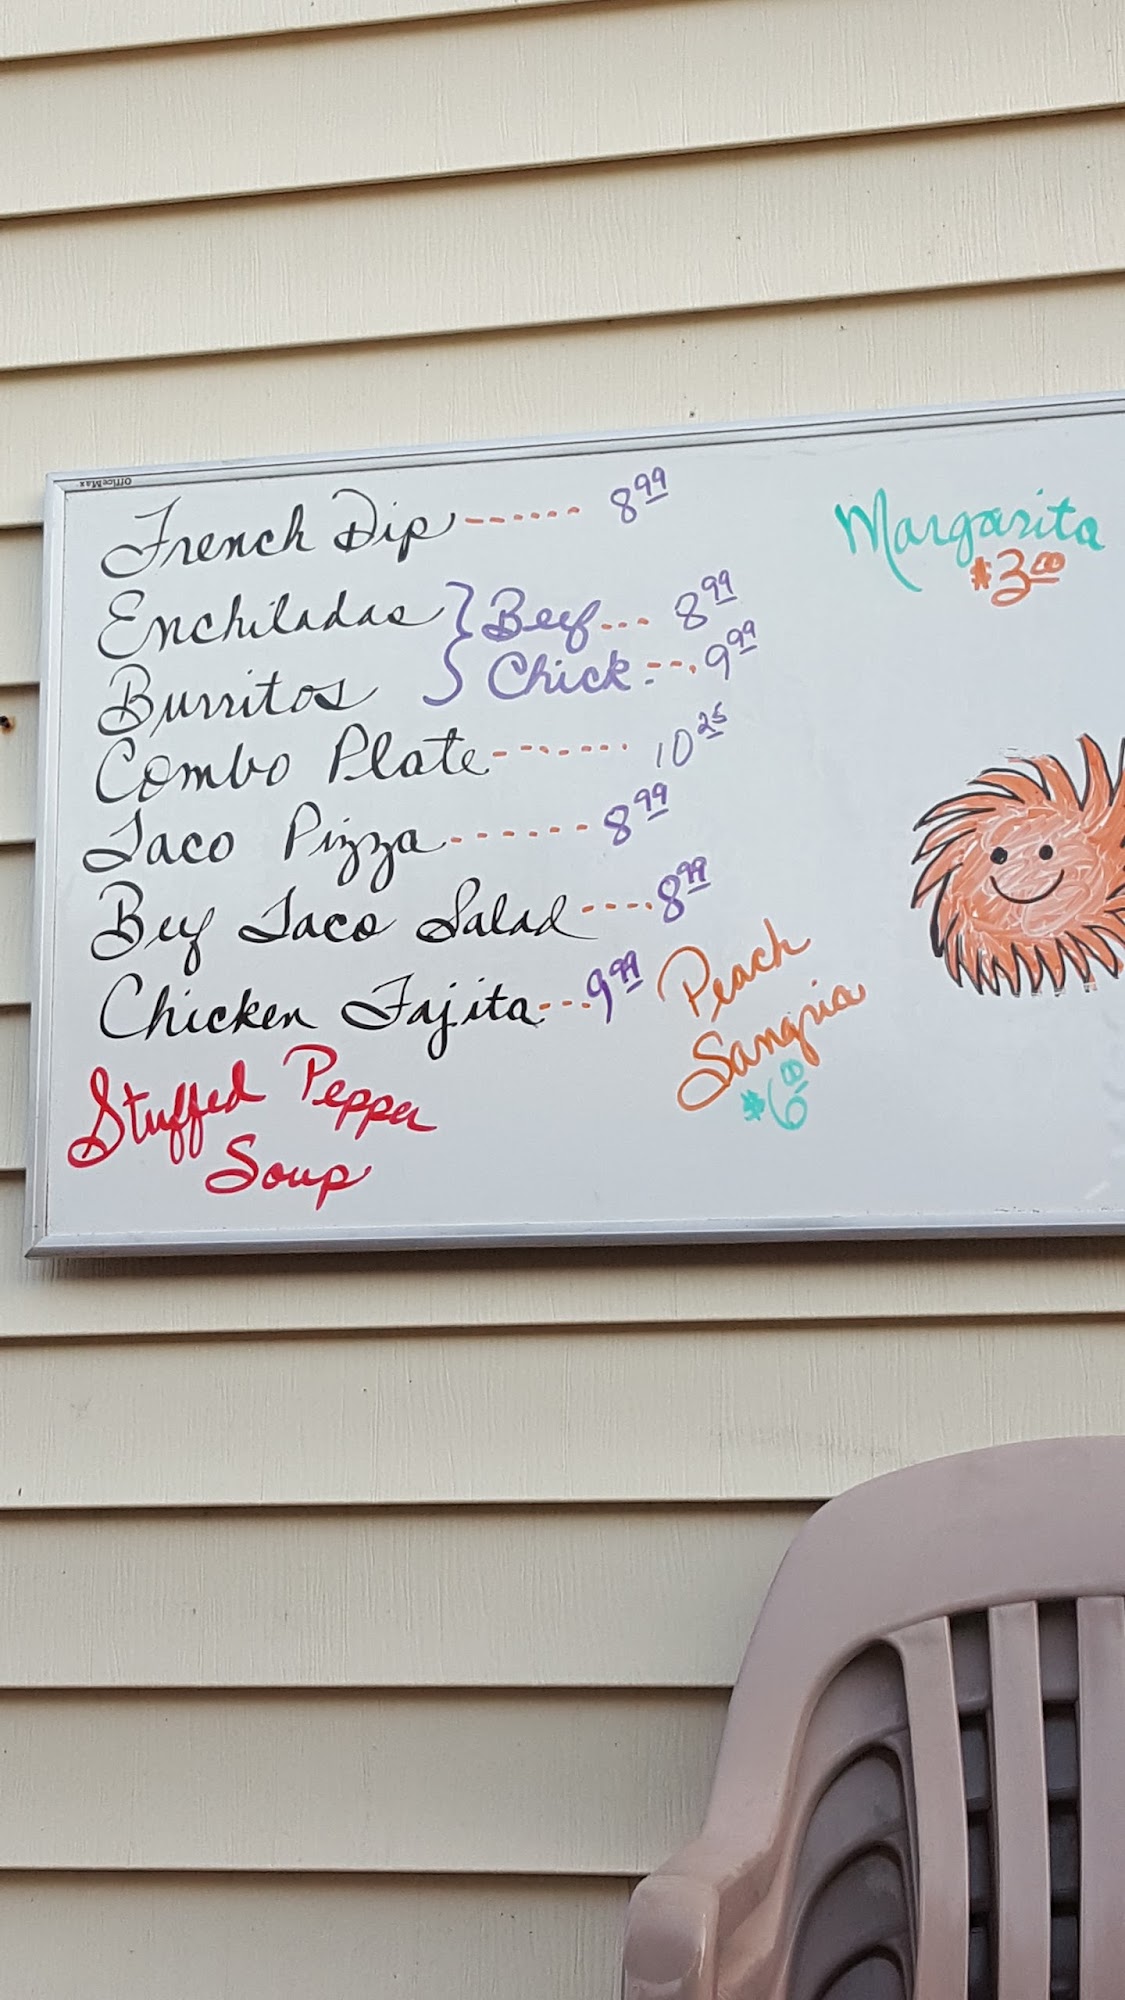 OfficeMax
French Dip ------ 8.99
Enchiladas } Beef --- 8.99
Burritos } Chick --- 9.99
Combo Plate ------- 10.25
Taco Pizza ------ 8.99
Beef Taco Salad ---- 8.99
Chicken Fajita --- 9.99
Stuffed Pepper
Soup
Margarita
$3.00
Peach
Sangria
$6.00